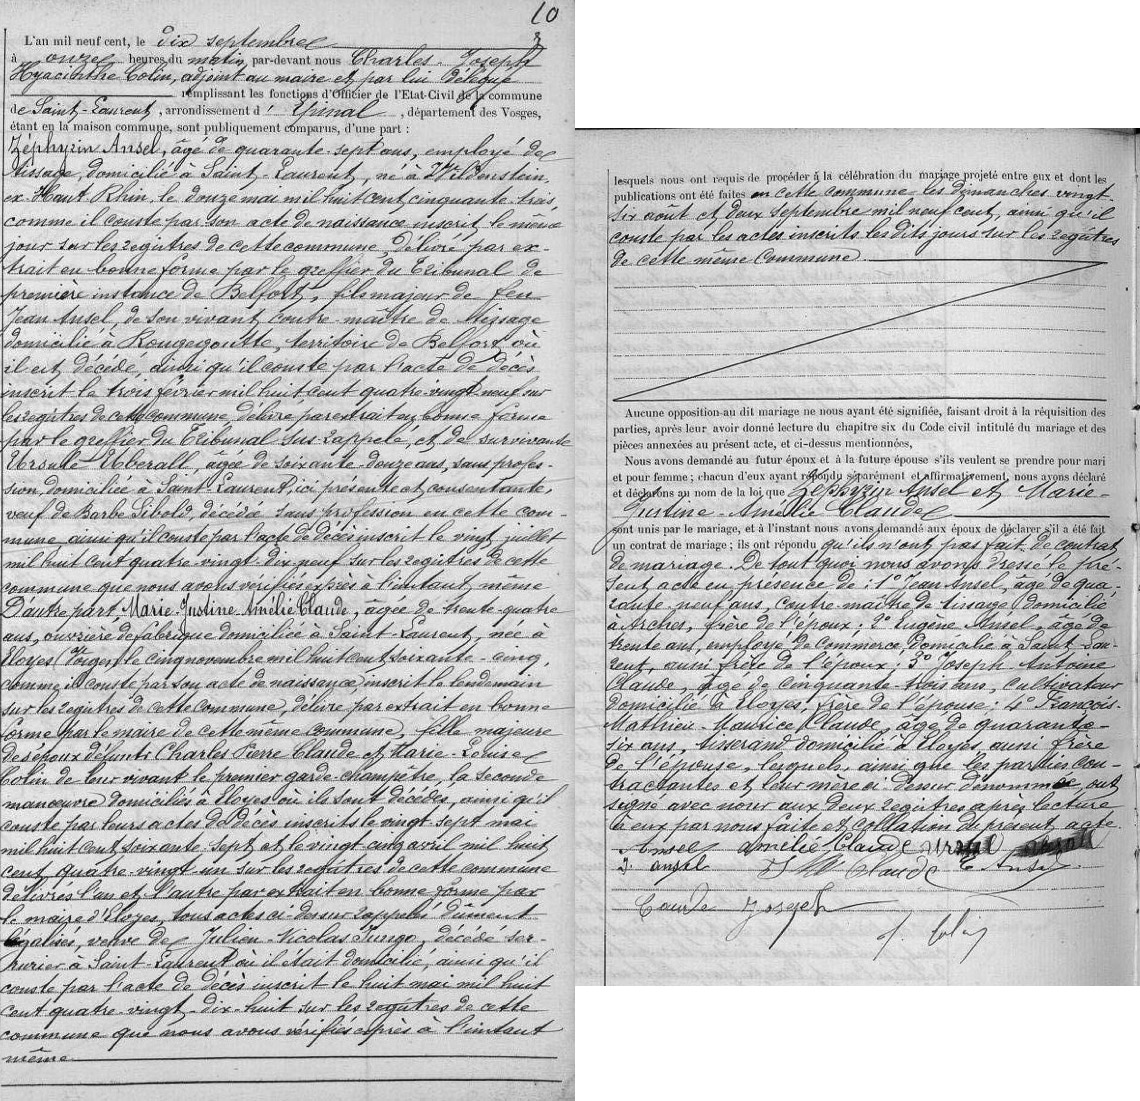 10
3
L'an mil neuf cent, le dix septembre
à onze heures du matin, par-devant nous Charles-Joseph
Hyacinthe Colin, adjoint au maire et par lui délégué
remplissant les fonctions d'Officier de l'Etat-Civil de la commune
de Saint-Laurent, arrondissement d'Epinal, département des Vosges,
étant en la maison commune, sont publiquement comparus, d'une part :
Zéphyrin Ansel, âgé de quarante-sept ans, employé de
tissage, domicilié à Saint-Laurent, né à Wildenstein,
ex-Haut Rhin, le douze mai mil huit cent cinquante-trois
comme il conste par son acte de naissance inscrit le même
jour sur les registres de cette commune, délivré par ex-
trait en bonne forme par le greffier du Tribunal de
première instance de Belfort, fils majeur de feu
Jean Ansel, de son vivant contre-maître de tissage
domicilié à Rougegoutte, territoire de Belfort où
il est décédé, ainsi qu'il conste par l'acte de décès
inscrit le trois février mil huit cent quatre-vingt-neuf sur
les registres de cette commune, délivré par extrait en bonne forme
par le greffier du Tribunal sus-rappelé, et de survivante
Ursule Uberall, âgée de soixante-douze ans, sans profes-
sion, domiciliée à Saint-Laurent, ici présente et consentante,
veuf de Barbe Sibold, décédée sans profession en cette com-
mune ainsi qu'il conste par l'acte de décès inscrit le vingt juillet
mil huit cent quatre-vingt-dix-neuf sur les registres de cette
commune que nous avons vérifiés exprès à l'instant même
D'autre part Marie-Justine Amélie Claude, âgée de trente-quatre
ans, ouvrière de fabrique domiciliée à Saint-Laurent, née à
Eloyes Vosges, le cinq novembre mil huit cent soixante-cinq,
comme il conste par son acte de naissance, inscrit le lendemain
sur les registres de cette commune, délivré par extrait en bonne
forme par le maire de cette même commune, fille majeure
des époux défunts Charles Pierre Claude et Marie-Louise
Colin de leur vivant le premier garde champêtre, la seconde
manœuvre domiciliés à Eloyes où ils sont décédés, ainsi qu'il
conste par leurs actes de décès inscrits le vingt-sept mai
mil huit cent soixante-sept et le vingt-cinq avril mil huit
cent quatre-vingt-un sur les registres de cette commune
délivrés l'un et l'autre par extrait en bonne forme par
le maire d'Eloyes, tous actes ci-dessus rappelés dûment
légalisés, veuve de Julien-Nicolas Jungo, décédé ser-
rurier à Saint-Laurent où il était domicilié, ainsi qu'il
conste par l'acte de décès inscrit le huit mai mil huit
cent quatre-vingt-dix-huit sur les registres de cette
commune que nous avons vérifiés exprès à l'instant
même
lesquels nous ont requis de procéder à la célébration du mariage projeté entre eux et dont les
publications ont été faites en cette commune les dimanches vingt-
six août et deux septembre mil neuf cent, ainsi qu'il
conste par les actes inscrits les dits jours sur les registres
de cette même commune
Aucune opposition au dit mariage ne nous ayant été signifiée, faisant droit à la réquisition des
parties, après leur avoir donné lecture du chapitre six du Code civil intitulé du mariage et des
pièces annexées au présent acte, et ci-dessus mentionnées,
Nous avons demandé au futur époux et à la future épouse s'ils veulent se prendre pour mari
et pour femme ; chacun d'eux ayant répondu séparément et affirmativement, nous avons déclaré
et déclarons au nom de la loi, que Zéphyrin Ansel et Marie-
Justine-Amélie Claude
sont unis par le mariage, et à l'instant nous avons demandé aux époux de déclarer s'il a été fait
un contrat de mariage ; ils ont répondu qu'ils n'ont pas fait de contrat
de mariage. De tout quoi nous avons dressé le pré-
sent acte en présence de : 1° Jean Ansel, âgé de qua-
rante-neuf ans, contre-maître de tissage domicilié
à Arches, frère de l'époux ; 2° Eugène Ansel, âgé de
trente ans, employé de commerce, domicilié à Saint-Lau-
rent, aussi frère de l'époux ; 3° Joseph Antoine
Claude, âgé de cinquante-trois ans, cultivateur
domicilié à Eloyes, frère de l'épouse ; 4° François-
Mathieu-Maurice Claude, âgé de quarante-
six ans, tisserand, domicilié à Eloyes, aussi frère
de l'épouse, lesquels, ainsi que les parties con-
tractantes et leur mère ci-dessus dénommée, ont
signé avec nous aux deux registres après lecture
à eux par nous faite et collation du présent acte.
Ansel amélie Claude ursul
J. ansel Claude E Ansel
Claude Joseph
Colin